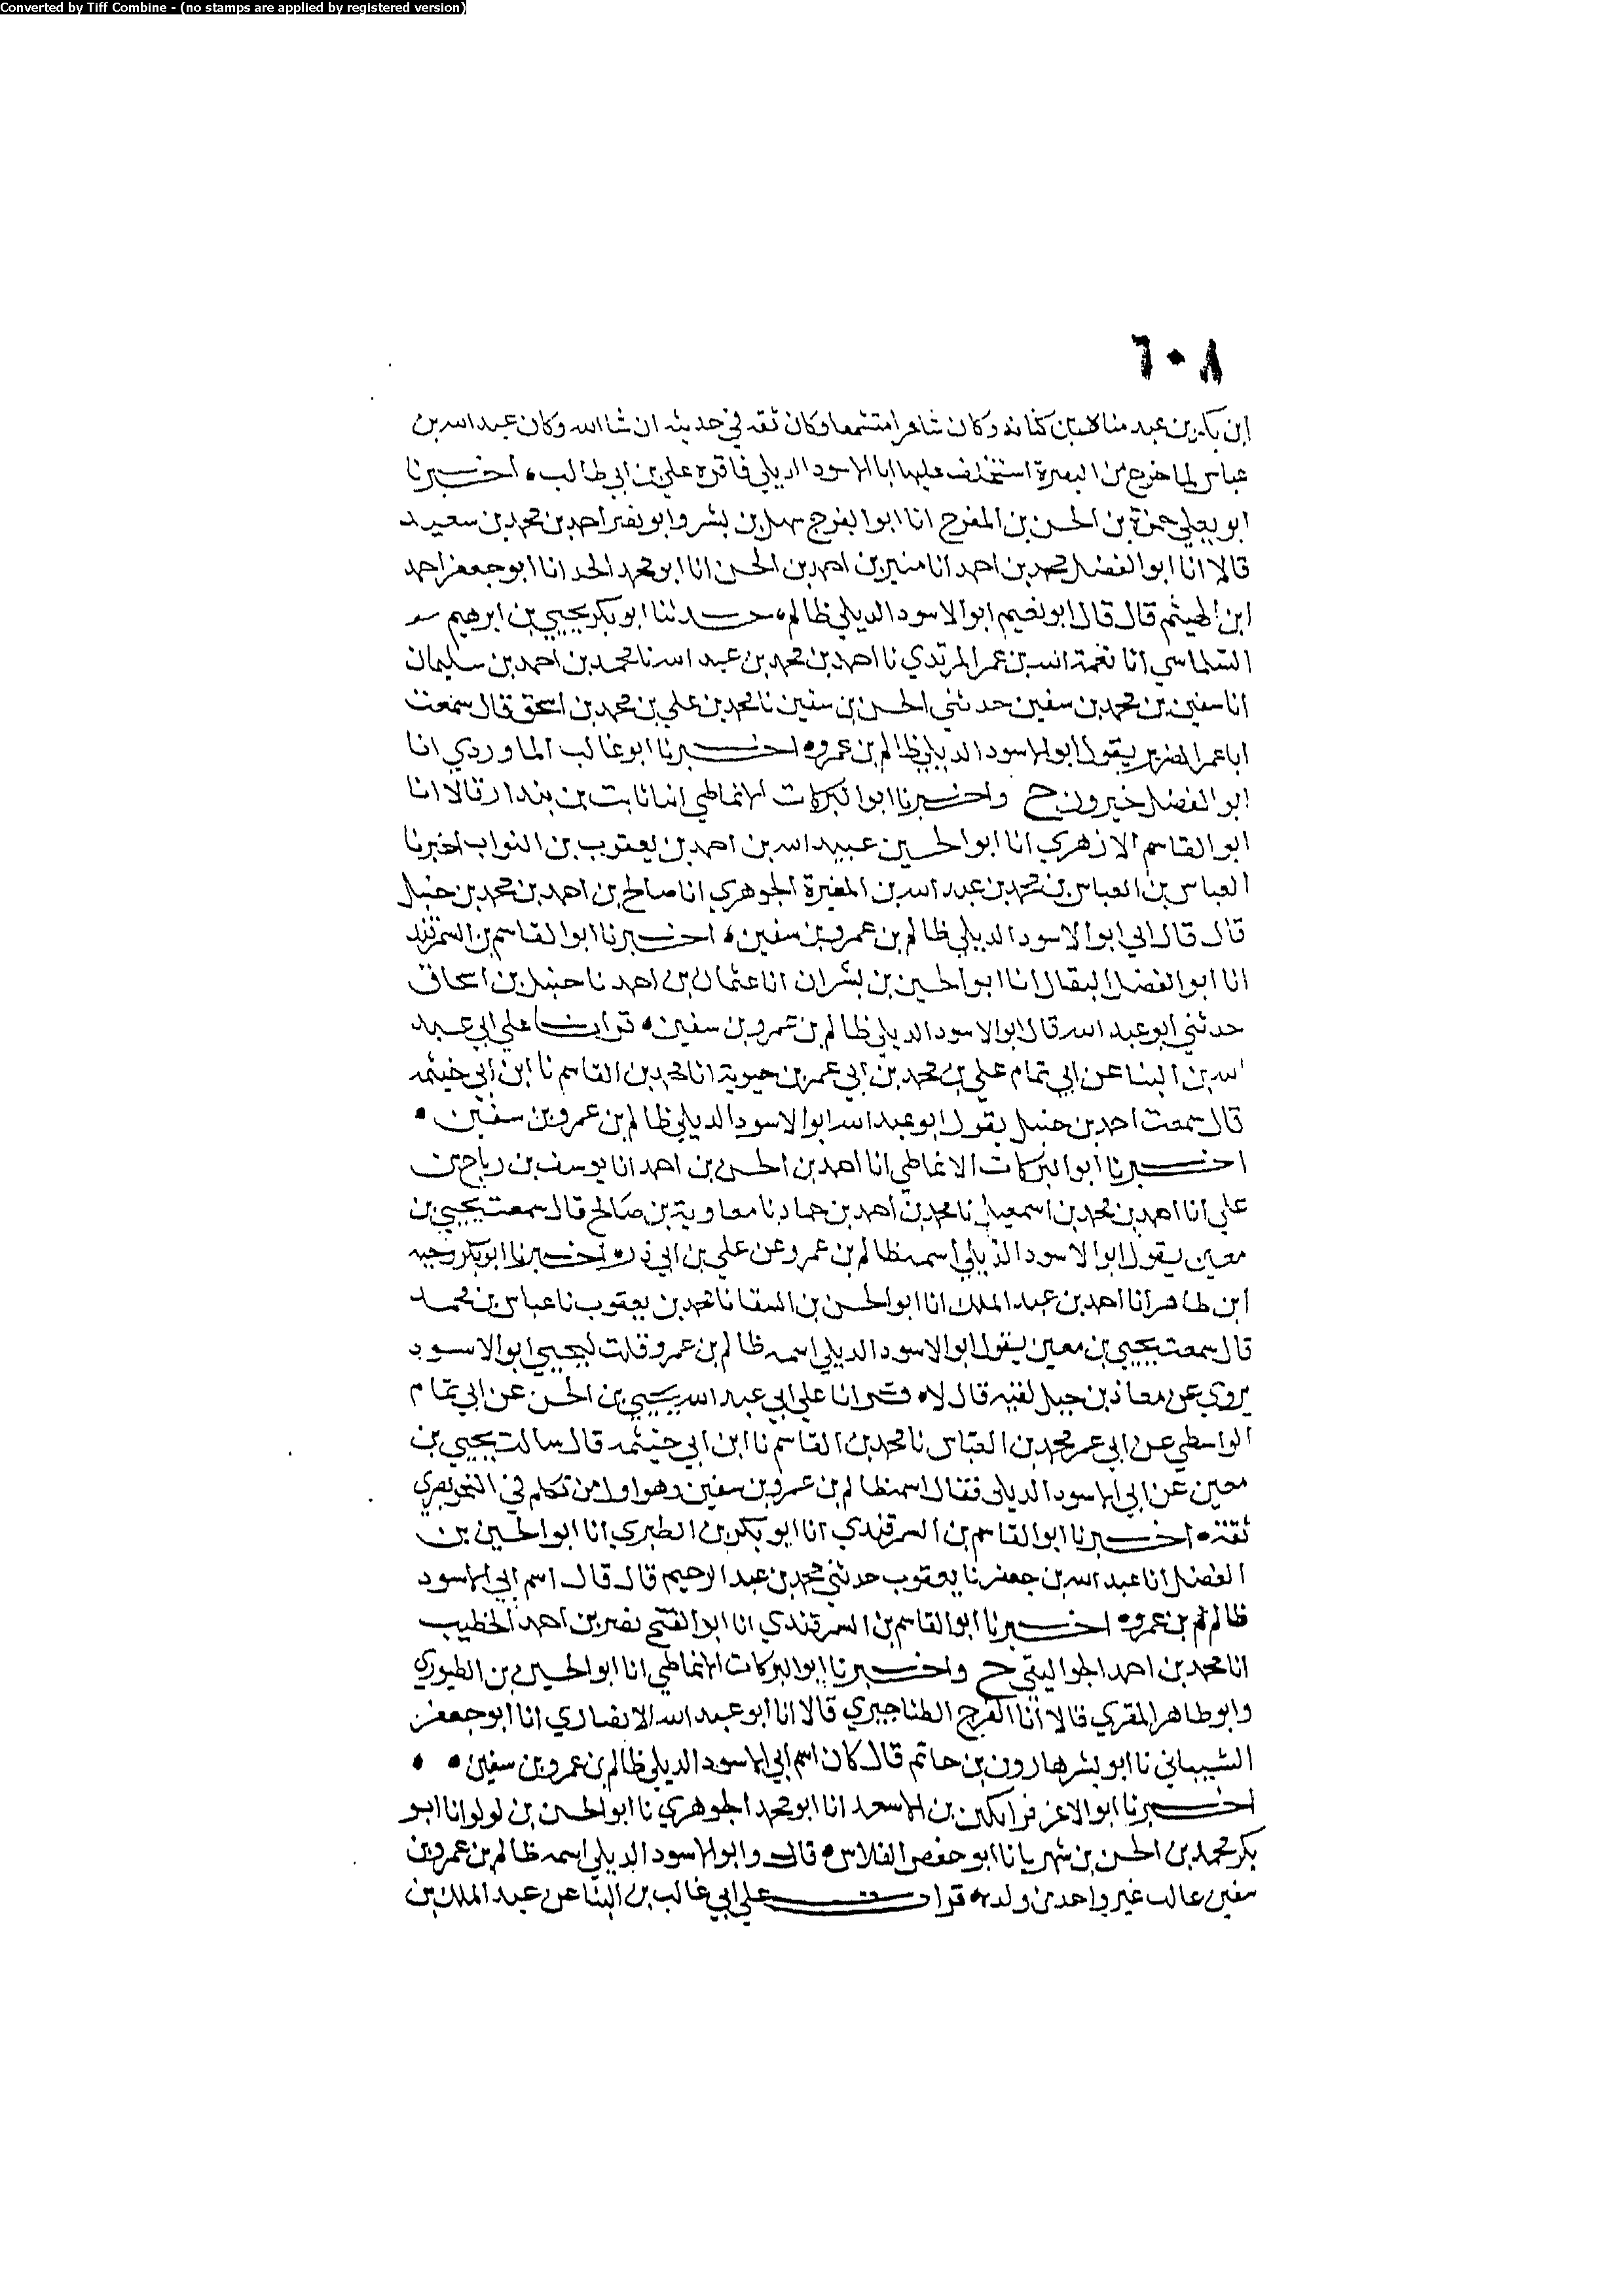 Converted by Tiff Combine - (no stamps are applied by registered version)
٦٠٨
ابن بكر بن عبد مناة بن كنانة وكان شاعرا متشيعا وكان ثقه في حديثه ان شا الله وكان عبد الله بن
عباس لما خرج من البصرة استخلف عليها ابا الاسود الديلي فاقره علي بن ابي طالب، اخبرنا
ابو يعلي حمزة بن الحسن بن المفرج انا ابوا لفرج سهل بن بشر وابو نصر احمد بن محمد بن سعيد
قالا انا ابو الفضل محمد بن احمد انا منير بن احمد بن الحسن انا ابو محمد الحد انا ابو جعفر احمد
ابن الهيثم قال قال ابو نعيم ابو الاسود الديلي ظالم، حدثنا ابو بكر يحيى بن ابرهيم
السلماسي انا نعمة الله بن عمر المرثدي نا احمد بن محمد بن عبد الله نا محمد بن احمد بن سليمان
انا سفين بن محمد بن سفين حدثني الحسن بن سفين نا محمد بن علي بن محمد بن اسحق قال سمعت
ابا عمر الضرير يقول ابو الاسود الديلي ظالم بن عمرو ه اخبرنا ابو غالب الماوردي انا
ابو الفضل خيرون ح واخبرنا ابو البركات الانماطي انا ثابت بن بندار قالا انا
ابو القاسم الازهري انا ابو الحسين عبيد الله بن احمد بن يعقوب بن النواب اخبرنا
العباس بن العباس بن محمد بن عبد الله بن المغيرة الجوهري انا صالح بن احمد بن محمد بن حنبل
قال قال ابي ابو الاسود الديلي ظالم بن عمرو بن سفين، اخبرنا ابو القاسم بن السمرقند
انا ابو الفضل البقال انا ابو الحسين بن بشران انا عثمان بن احمد نا حنبل بن اسحاق
حدثني ابو عبد الله قال ابو الاسود الديلي ظالم بن عمرو بن سفين ه قرات علي ابي عبد
الله بن البنا عن ابي تمام علي بن محمد بن ابي عمر بن حيوية انا محمد بن القاسم نا ابن ابي خيثمه
قال سمعت احمد بن حنبل يقول ابو عبد الله ابو الاسود الديلي ظالم بن عمرو بن سفين ه
اخبرنا ابو البركات الانماطي انا احمد بن الحسن بن احمد انا يوسف بن رباح بن
علي انا احمد بن محمد بن اسمعيل نا محمد بن احمد بن حماد نا معاوية بن صالح قال سمعت يحيى بن
معين يقول ابو الاسود الديلي اسمه ظالم بن عمرو عن علي بن ابي ذر ه اخبرنا ابو بكر وجيه
ابن طاهر انا احمد بن عبد الملك انا ابو الحسن بن السقا نا محمد بن يعقوب نا عباس بن محمد
قال سمعت يحيى بن معين يقول ابو الاسود الديلي اسمه ظالم بن عمرو قلت ليحيى ابو الاسود
يروي عن معاذ بن جبل لقيه قال لا ه قرانا علي ابي عبد الله يحيى بن الحسن عن ابي تمام
الواسطي عن ابي عمر محمد بن العباس نا محمد بن القاسم نا ابن ابي خيثمه قال سالت يحيى بن
معين عن ابي الاسود الديلي فقال اسمه ظالم بن عمرو بن سفين وهو اول من تكلم في النحو بصري
ثقة ه اخبرنا ابو القاسم بن السمرقندي انا ابو بكر بن الطبري انا ابو الحسين بن
الفضل انا عبد الله بن جعفر نا يعقوب حدثني محمد بن عبد الرحيم قال قال اسم ابي الاسود
ظالم بن عمرو ه اخبرنا ابو القاسم بن السمرقندي انا ابو الفتح نصر بن احمد الخطيب
انا محمد بن احمد الجواليقي ح واخبرنا ابو البركات الانماطي انا ابو الحسين بن الطيوري
وابو طاهر المقري قالا انا الفرج الطناجيري قالا انا ابو عبد الله الانصاري انا ابو جعفر
الشيباني نا ابو بشر هارون بن حاتم قال كان اسم ابي الاسود الديلي ظالم بن عمرو بن سفين ه ه
اخبرنا ابو الاعز قراتكين بن الاسعد انا ابو محمد الجوهري نا ابو الحسن بن لولو انا ابو
بكر محمد بن الحسن بن شهريا نا ابو حفص الفلاس ه قال وابو الاسود الديلي اسمه ظالم بن عمرو بن
سفين غير واحد من ولده ه قرات علي ابي غالب بن البنا عن عبد الملك بن